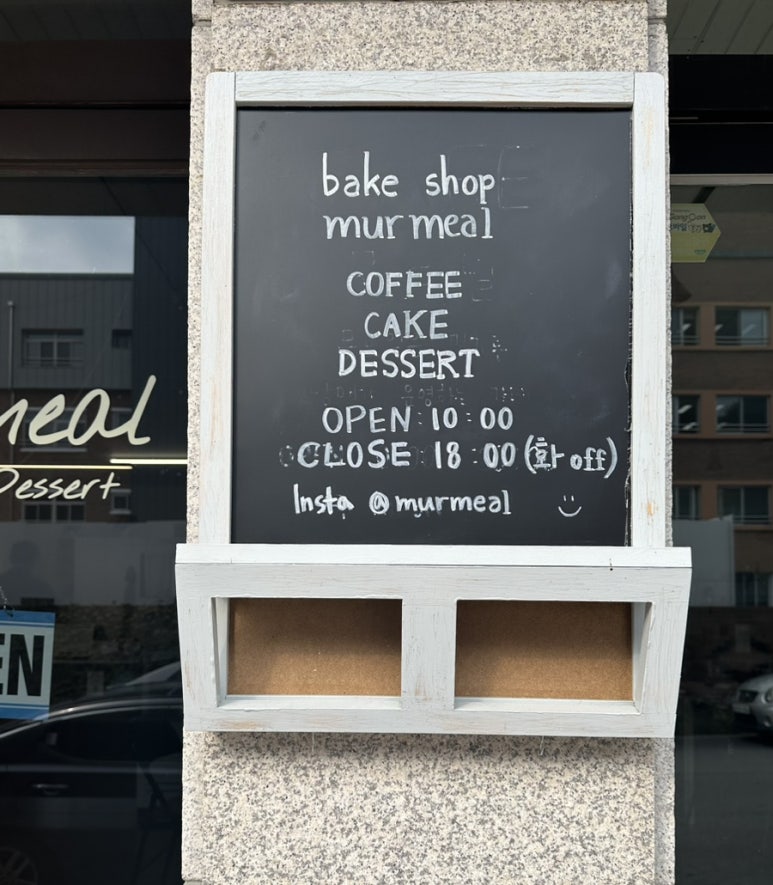 bake shop
murmeal
COFFEE
CAKE
DESSERT
OPEN 10:00
CLOSE 18:00 (화 off)
Insta @murmeal
eal
Dessert
EN